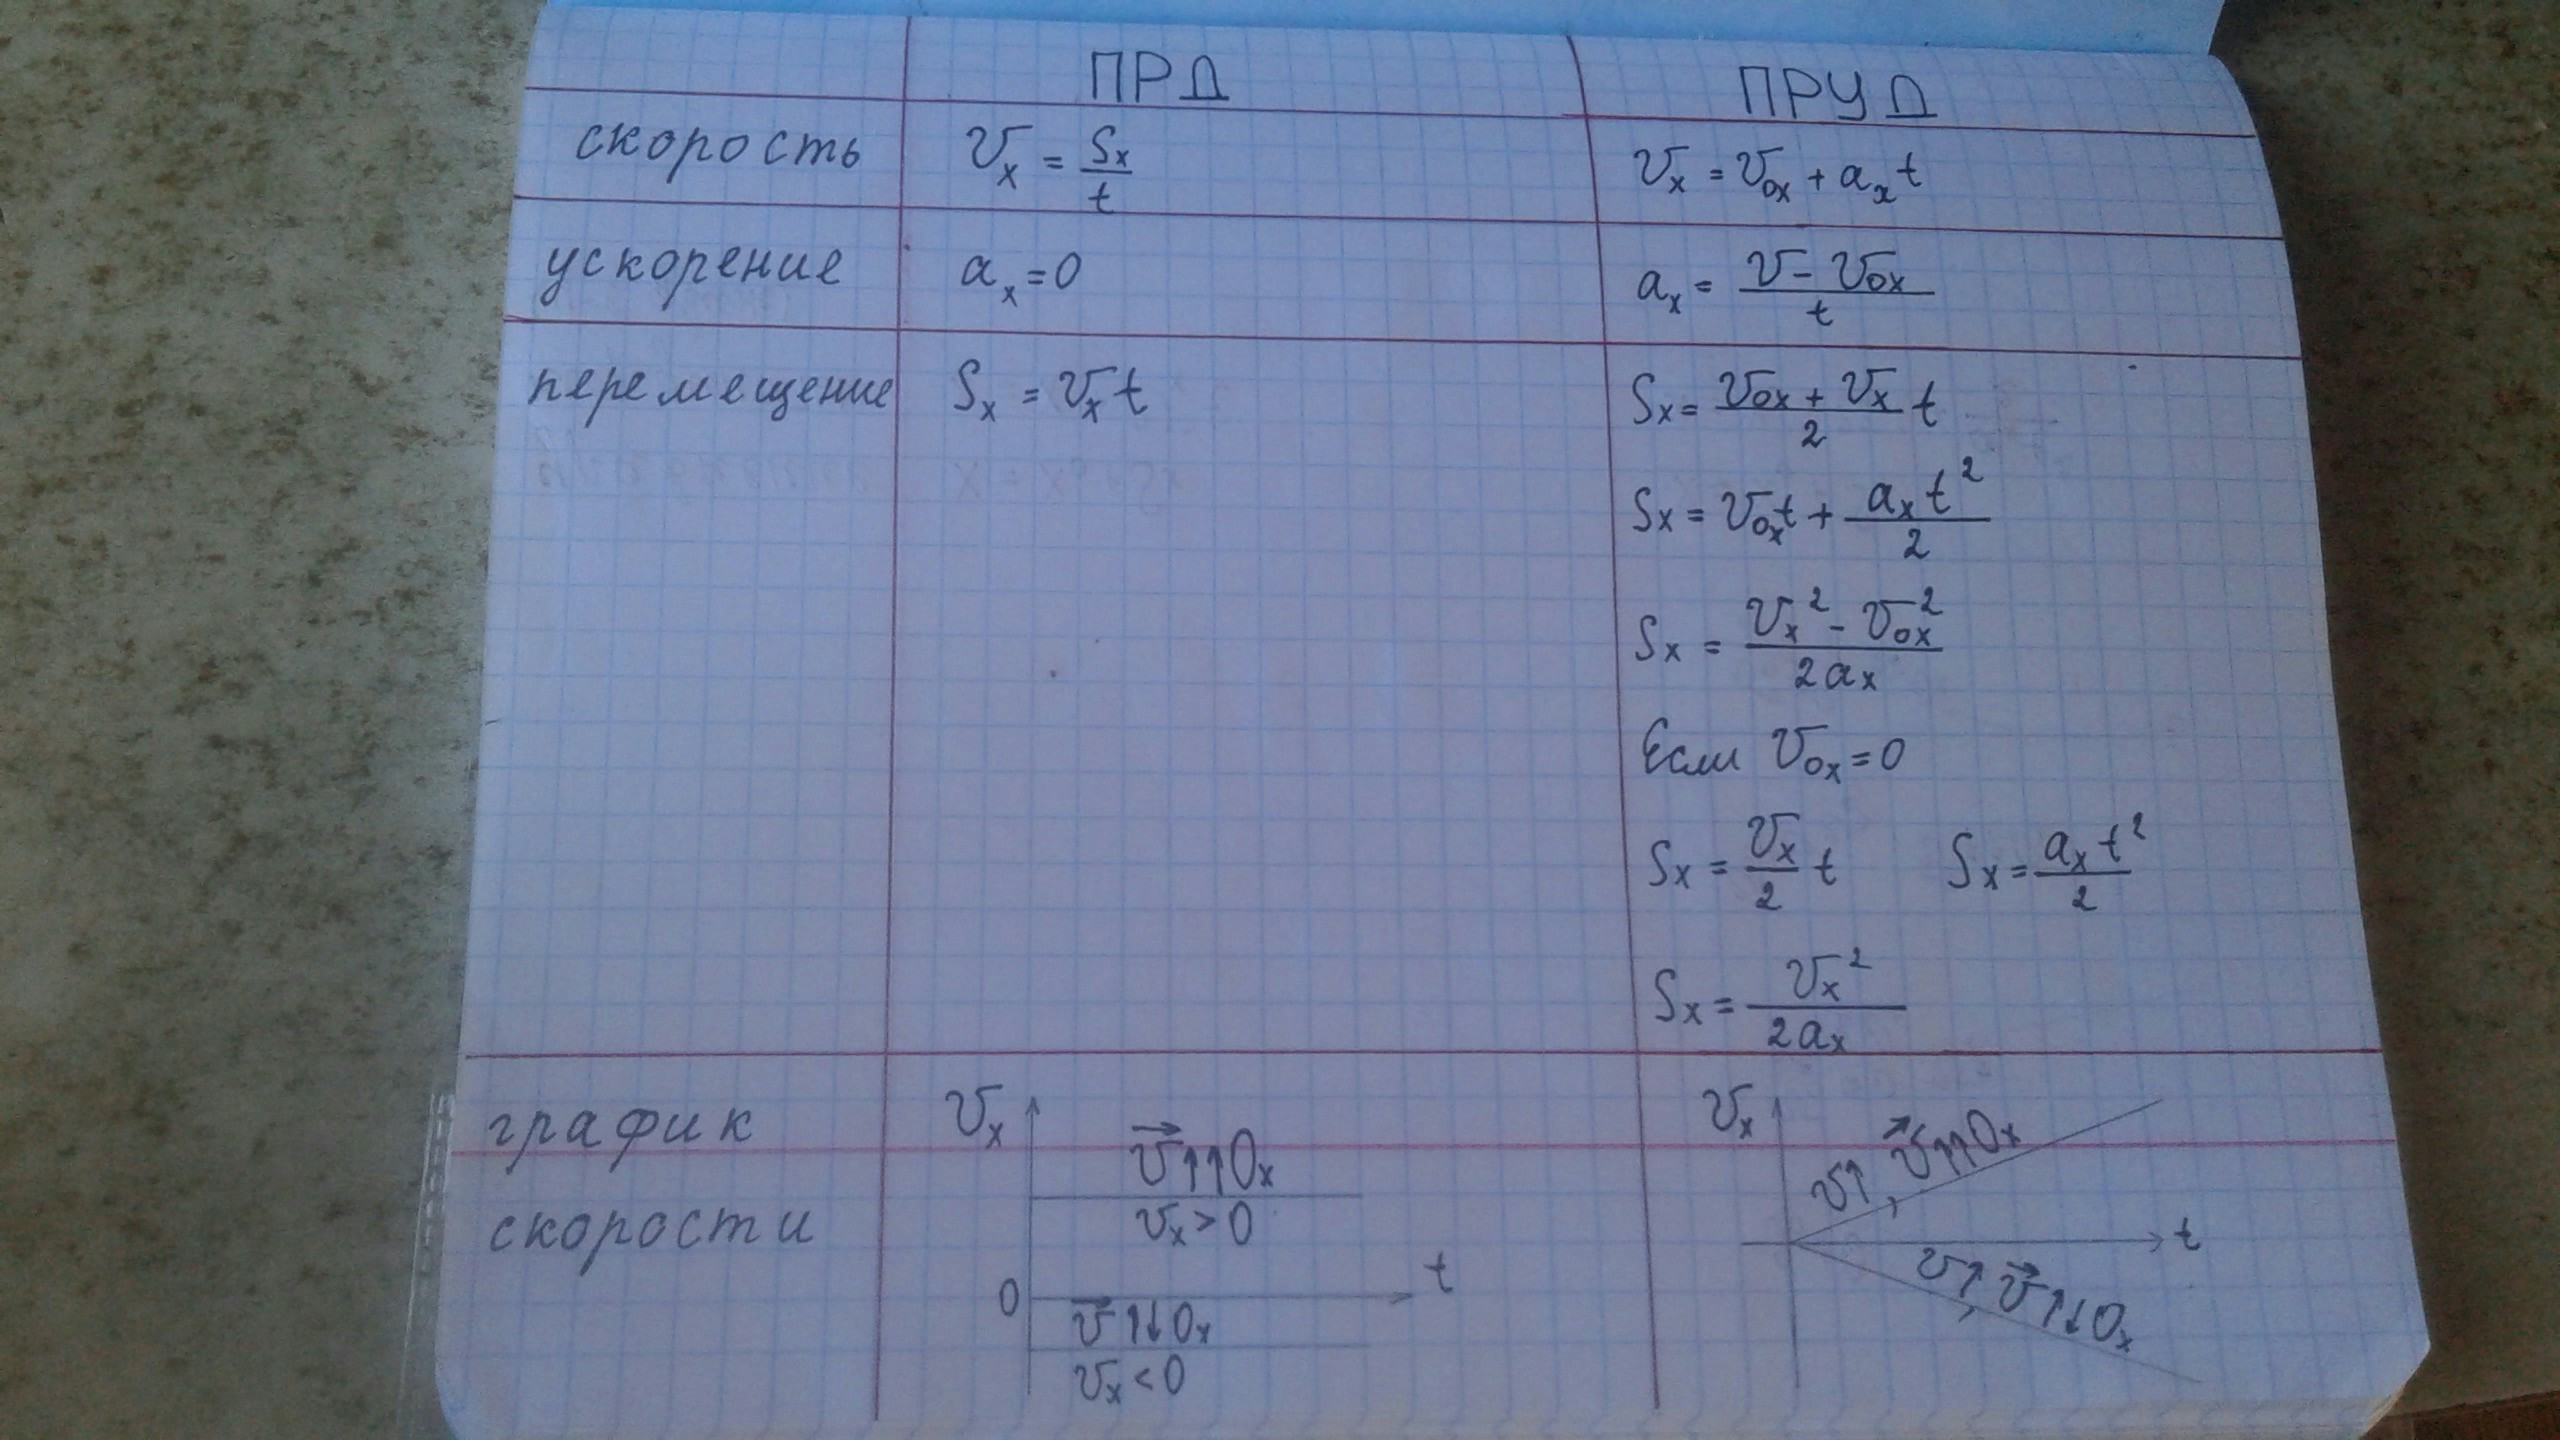 ПРД ПРУД
скорость vₓ = Sₓ/t vₓ = v₀ₓ + aₓt
ускорение aₓ = 0 aₓ = (v - v₀ₓ)/t
перемещение Sₓ = vₓt Sₓ = (v₀ₓ + vₓ)/2 t
Sₓ = v₀ₓt + aₓt²/2
Sₓ = (vₓ² - v₀ₓ²)/2aₓ
Если v₀ₓ = 0
Sₓ = vₓ/2 t Sₓ = aₓt²/2
Sₓ = vₓ²/2aₓ
график
скорости
vₓ
v⃗↑↑Oₓ
vₓ > 0
t
0
v⃗↑↓Oₓ
vₓ < 0
vₓ
v↑, v⃗↑↑Oₓ
t
v↑, v⃗↑↓Oₓ